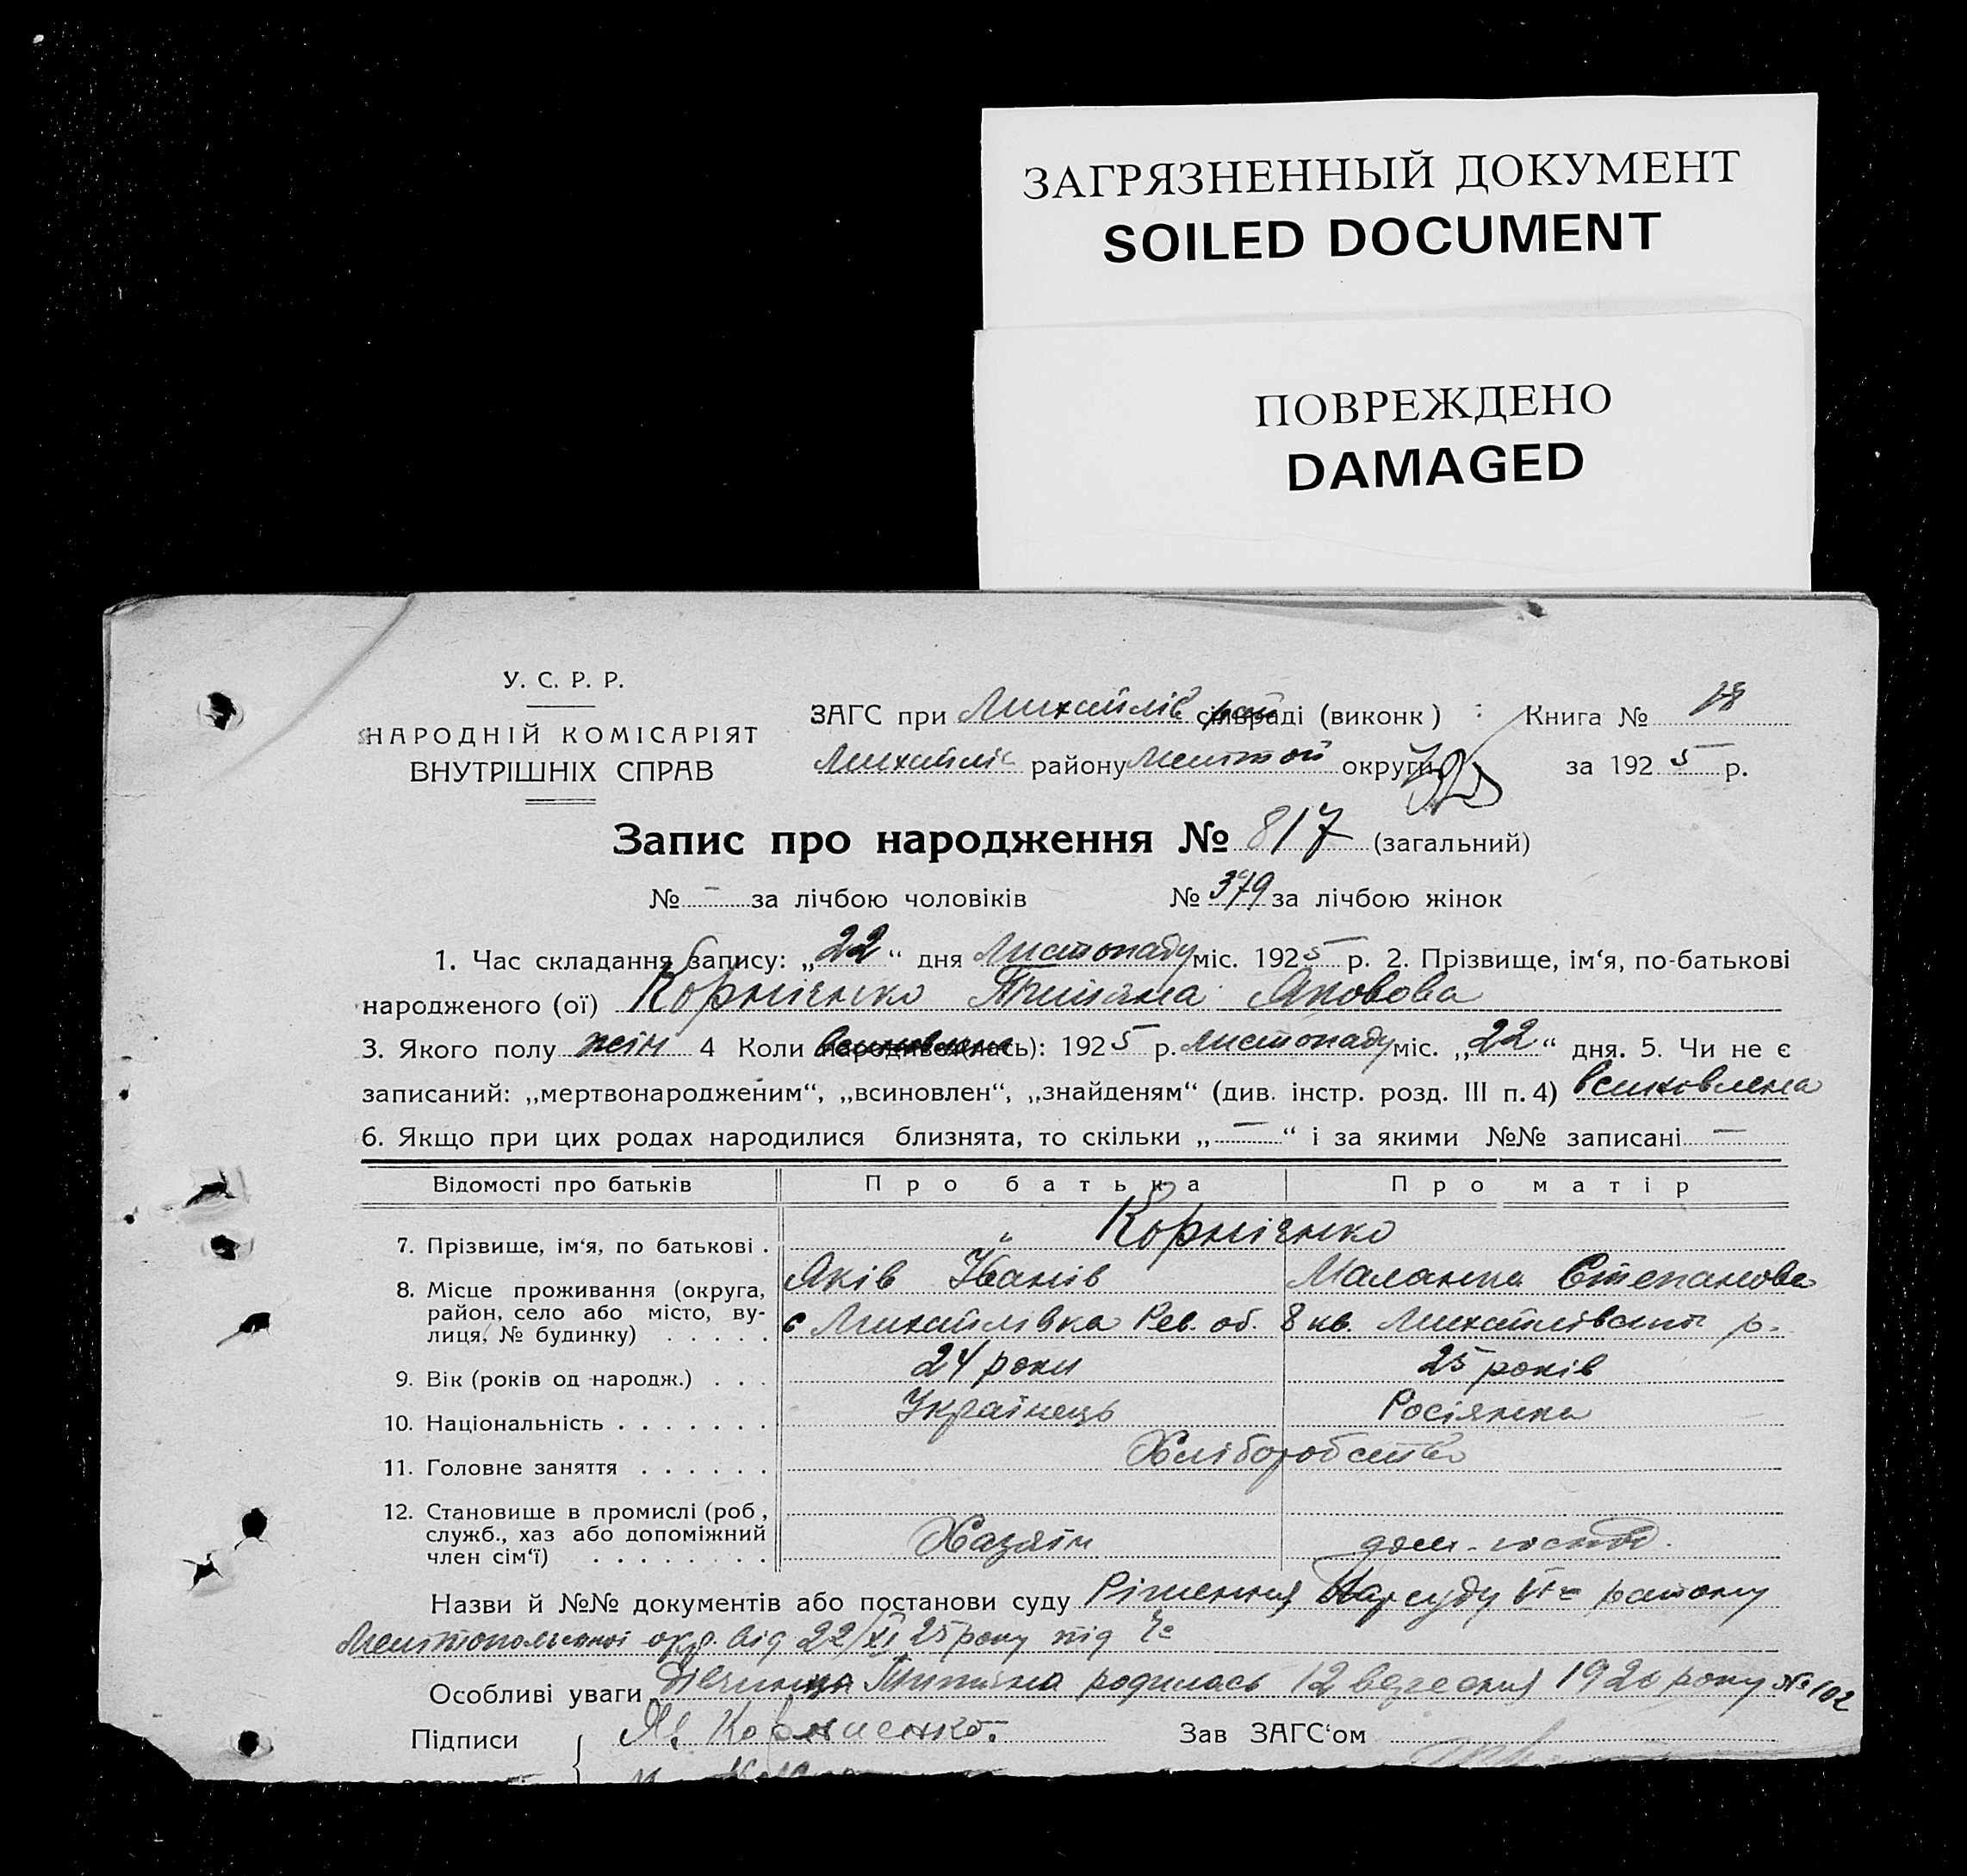 ЗАГРЯЗНЕННЫЙ ДОКУМЕНТ
SOILED DOCUMENT
ПОВРЕЖДЕНО
DAMAGED
У. С. Р. Р.
НАРОДНІЙ КОМІСАРІЯТ
ВНУТРІШНІХ СПРАВ
ЗАГС при Михайлів рай сільраді (виконк) Книга № 18
Михайлів району Мелітой округи за 1925 р.
Запис про народження № 817 (загальний)
№ — за лічбою чоловіків № 379 за лічбою жінок
1. Час складання запису: „22“ дня Листопаду міс. 1925 р. 2. Прізвище, ім‘я, по-батькові
народженого (ої) Корнієнко Титяна Яковова
3. Якого полу жін 4 Коли народився(лась): всиновлена 1925 р. листопаду міс. „22“ дня. 5. Чи не є
записаний: „мертвонародженим“, „всиновлен“, „знайденям“ (див. інстр. розд. III п. 4) всиновлена
6. Якщо при цих родах народилися близнята, то скільки „—“ і за якими №№ записані —
Відомості про батьків Про батька Про матір
7. Прізвище, ім‘я, по батькові . Корнієнко
Яків Іванів Маланка Степанова
8. Місце проживання (округа,
район, село або місто, ву-
лиця, № будинку) . . . . . с Михайлівка Рев. об. 8 кв. Михайлівського р.
9. Вік (років од народж.) . . . 24 роки 25 років
10. Національність . . . . . . . Українець Росіянка
11. Головне заняття . . . . . . Хліборобство
12. Становище в промислі (роб,
служб., хаз або допоміжний
член сім‘ї) . . . . . . . . Хазяїн дом.
Назви й №№ документів або постанови суду Рішення Нарсуду району
Мелітопольської окр. від 22/XI 25 року під
Особливі уваги Дівчинка Титяна родилась 12 вересня 1920 року № 102
Підписи Я. Корниенко. Зав ЗАГС‘ом